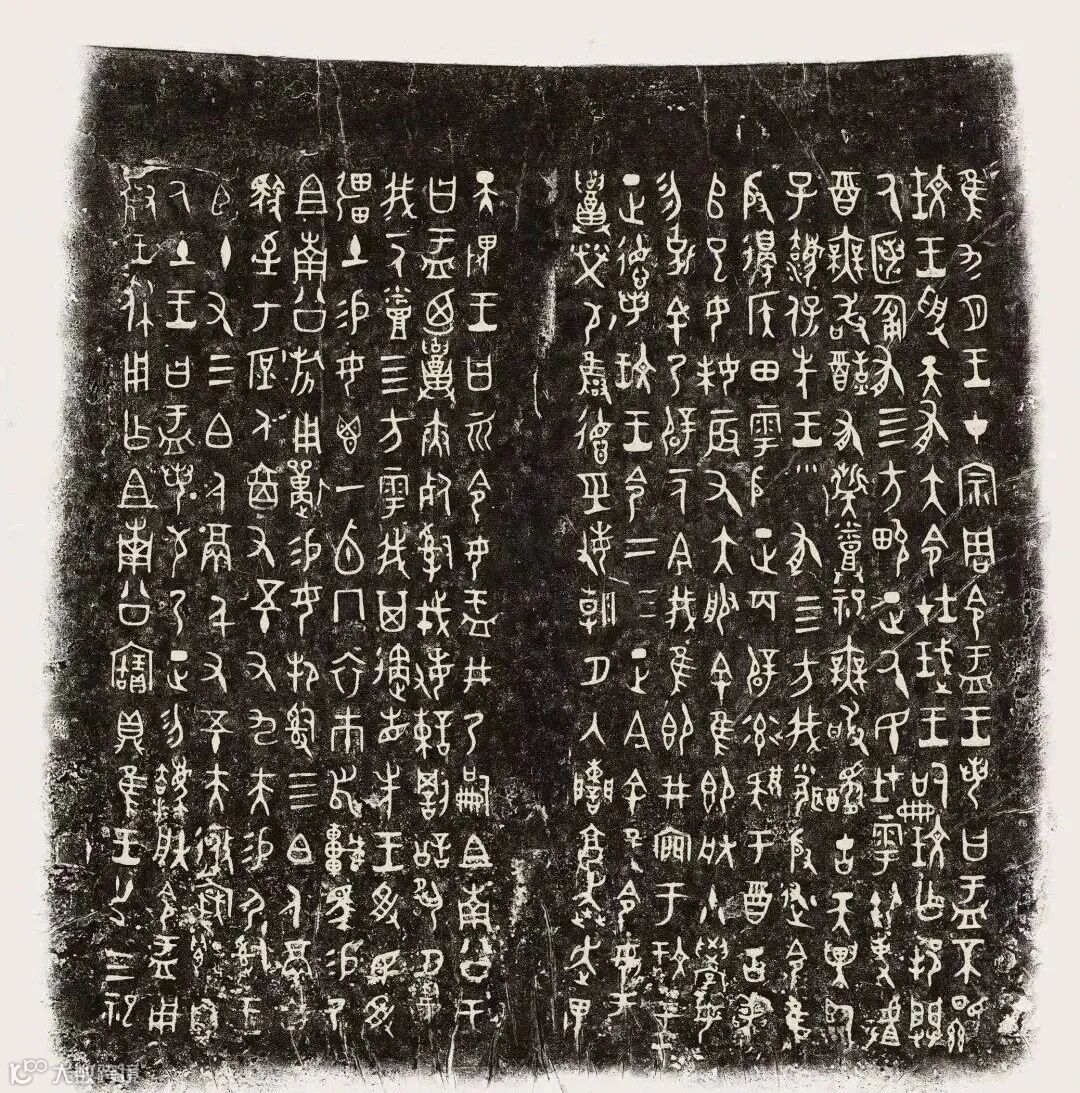 隹九月王才宗周令盂王若曰盂不顯
玟王受天有大令在珷王嗣玟乍邦闢
氒匿匍有四方畯正氒民在雩御事𠭯
酉無敢酖有祡烝祀無敢醻古天異臨
子灋保先王有四方我聞殷述令隹
殷邊侯田雩殷正百辟率肄于酉古喪
𠂤巳女妹辰又大服余隹即朕小學女
勿余乃辟一人今我隹即井㐭于玟王
正德若玟王令二三正今余隹令女盂
召榮敬雝德巠敏朝夕入讕享奔走畏
天畏王曰𠀠令女盂井乃嗣且南公王
曰盂廼召夾死司戎敏諫罰訟夙夕召
我一人烝四方雩我其遹省先王受民受
疆土易女鬯一卣冂衣巿舄車馬易乃
且南公旂用狩易女邦司四白人鬲自
馭至于庶人六百又五十又九夫易尸司王
臣十又三白人鬲千又五十夫𢓊𡩜遷自
氒土王曰盂若敬乃正勿灋朕令盂用
對王休用乍且南公寶鼎隹王廿又三祀
大数跨境